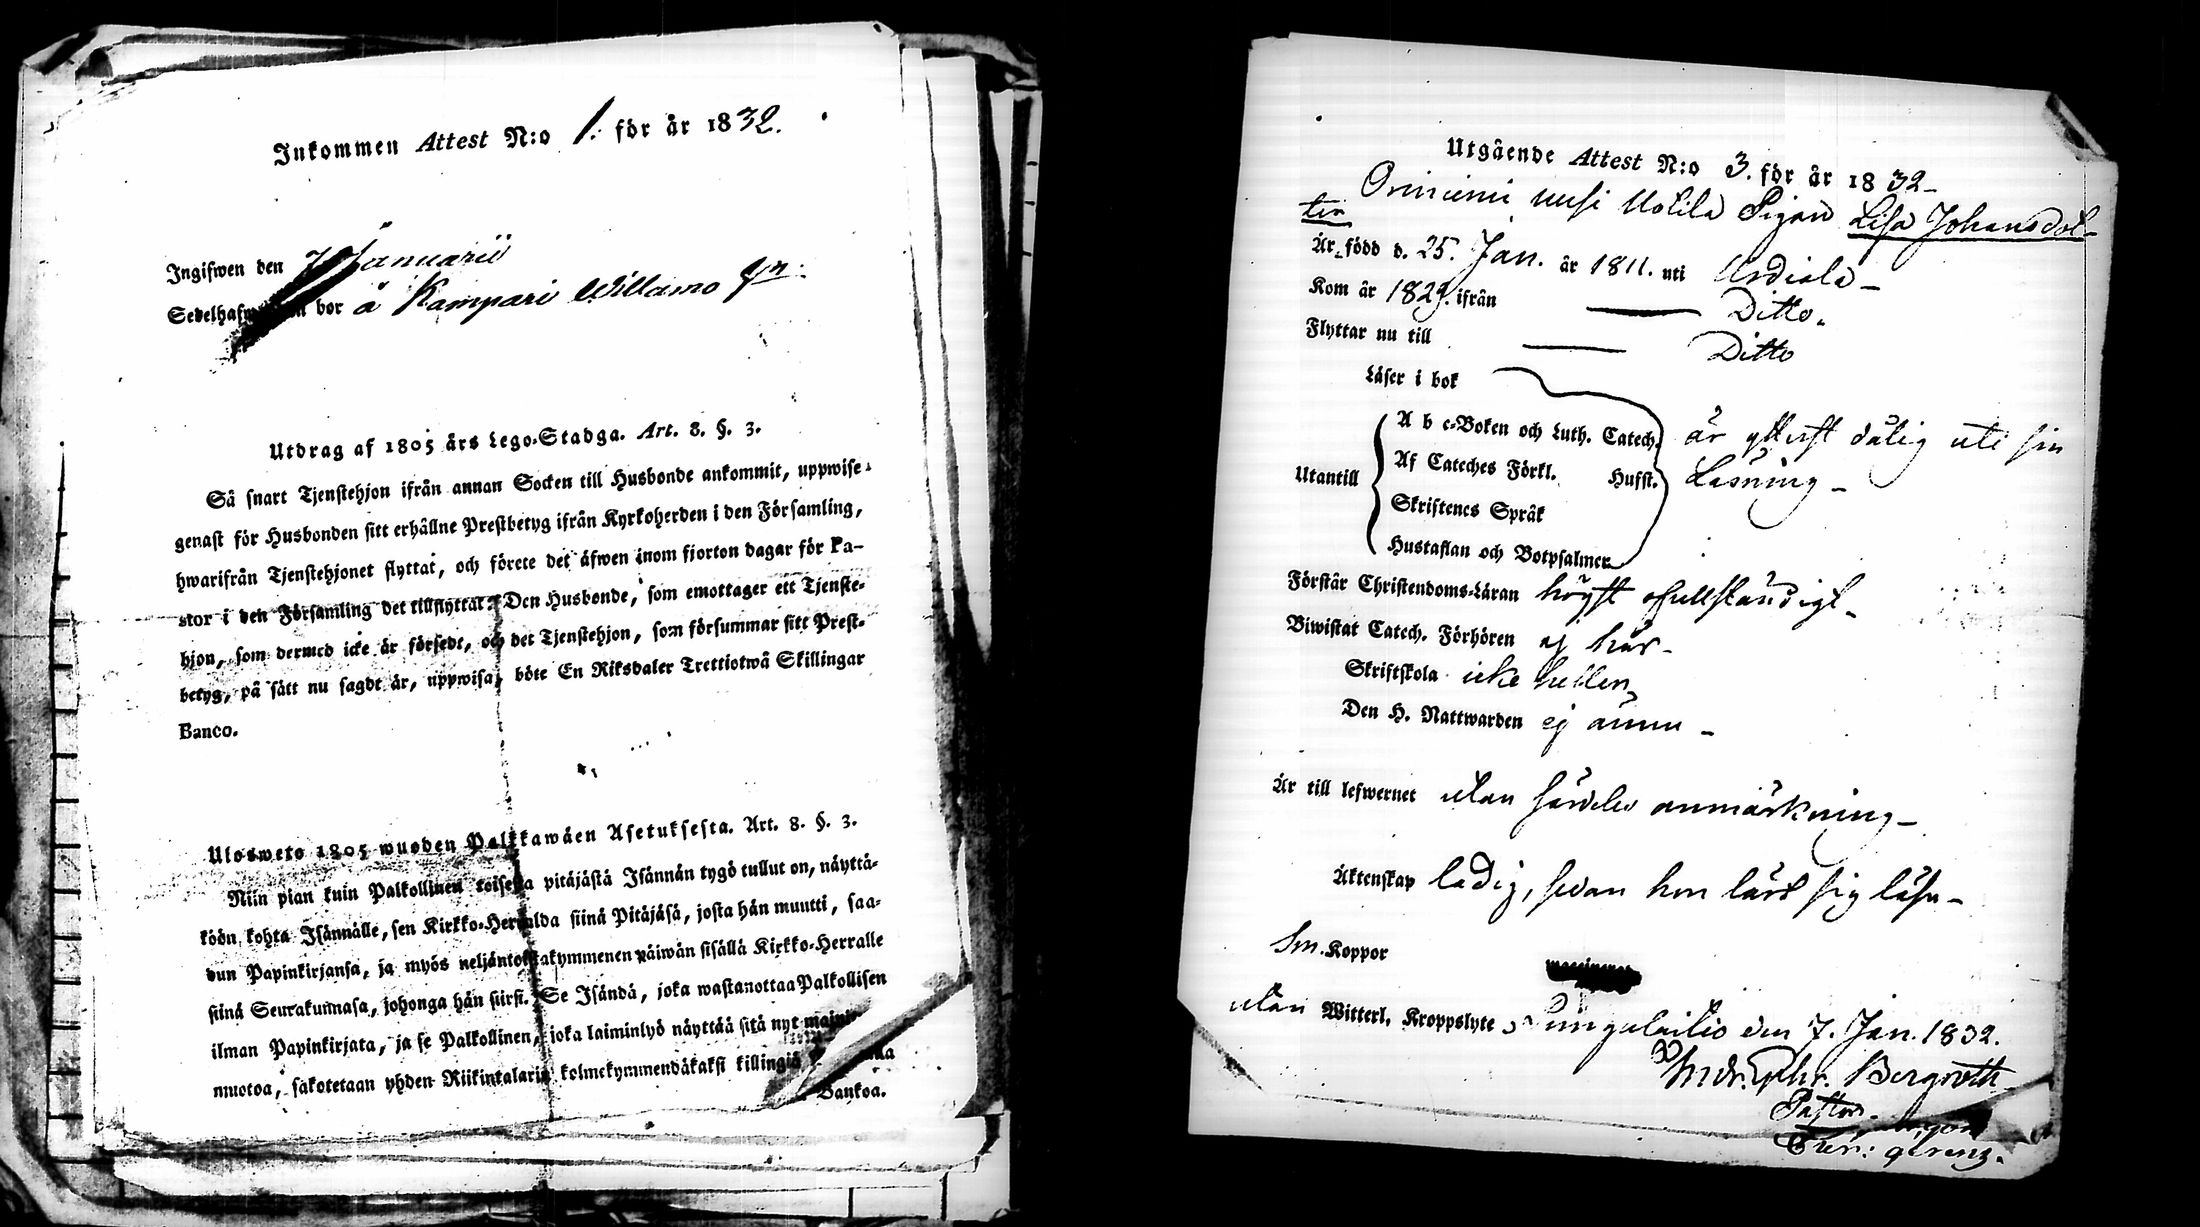 Inkommen Attest N:o 1. för år 1832.
Ingifwen den 7 Januarii
Sedelhafwaren bor å Kampari Willamo
Utdrag af 1805 års Lego-Stadga. Art. 8. §. 3.
Så snart Tjenstehjon ifrån annan Socken till Husbonde ankommit, uppwise
genast för Husbonden sitt erhållne Prestbetyg ifrån Kyrkoherden i den Församling,
hwarifrån Tjenstehjonet flyttat, och förete det äfwen inom fjorton dagar för Pa-
stor i den Församling det tillflyttat. Den Husbonde, som emottager ett Tjenste-
hjon, som dermed icke är försedt, och det Tjenstehjon, som försummar sitt Prest-
betyg, på sätt nu sagdt är, uppwisa, böte En Riksdaler Trettiotwå Skillingar
Banco.
Ulosweto 1805 wuoden Palkkawäen Asetuksesta. Art. 8. §. 3.
Niin pian kuin Palkollinen toisesta pitäjästä Isännän tygö tullut on, näyttä-
köön kohta Isännälle, sen Kirkko-Herralda siinä Pitäjäsä, josta hän muutti, saa-
dun Papinkirjansa, ja myös neljäntoistakymmenen päiwän sisällä Kirkko-Herralle
siinä Seurakunnasa, johonga hän siirsi. Se Isändä, joka wastanottaa Palkollisen
ilman Papinkirjata, ja se Palkollinen, joka laiminlyö näyttää sitä nyt
muotoa, sakotetaan yhden Riikintalarin kolmekymmendäkaksi killingiä
Bankoa.
Utgående Attest N:o 3. för år 1832
uusi Uotila Pigan Lisa Johansdot-
ter
Är född d. 25. Jan. år 1811. uti Urdiala
Kom år 1829. ifrån Ditto.
Flyttar nu till Ditto
Läser i bok
A b c-Boken och Luth. Catech. är ytterst dålig uti sin
Utantill Af Cateches Förkl. Hufst. Läsning
Skriftenes Språk
Hustaflan och Botpsalmer
Förstår Christendoms-Läran högst ofullständigt
Biwistat Catech. Förhören ej här
Skriftskola icke heller
Den H. Nattwarden ej ännu
Är till lefwernet utan särdeles anmärkning
Äktenskap ledig, sedan hon lärt sig läsa
Sm. Koppor
utan Witterl. Kroppslyte Pungalaitio den 7. Jan. 1832.
Andr. Gehr. Bergroth
Pastor
gerens.